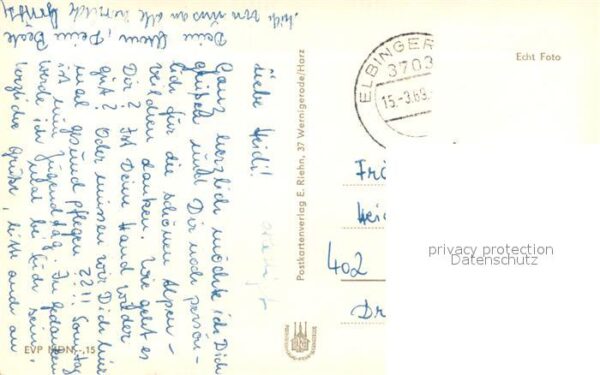 Liebe Heidi!
Ganz herzlich möchte ich Dich
grüßen und Dir noch persön-
lich für die schönen Alpen-
veilchen danken. Wie geht es
Dir? Ist Deine Hand wieder
gut? Oder müssen wir Dich hier
mal gesund pflegen ??!! Sonntag
ist nun Jugendtag. In Gedanken
werde ich mal bei Euch sein,
herzliche Grüße, bitte auch an
von uns an alle
Deine
Deine Beate
EVP MDN -,15
Postkartenverlag E. Riehn, 37 Wernigerode/Harz
ELBINGER
3703
15.-3.69.
Echt Foto
Frä
Hei
402
Dr
privacy protection
Datenschutz